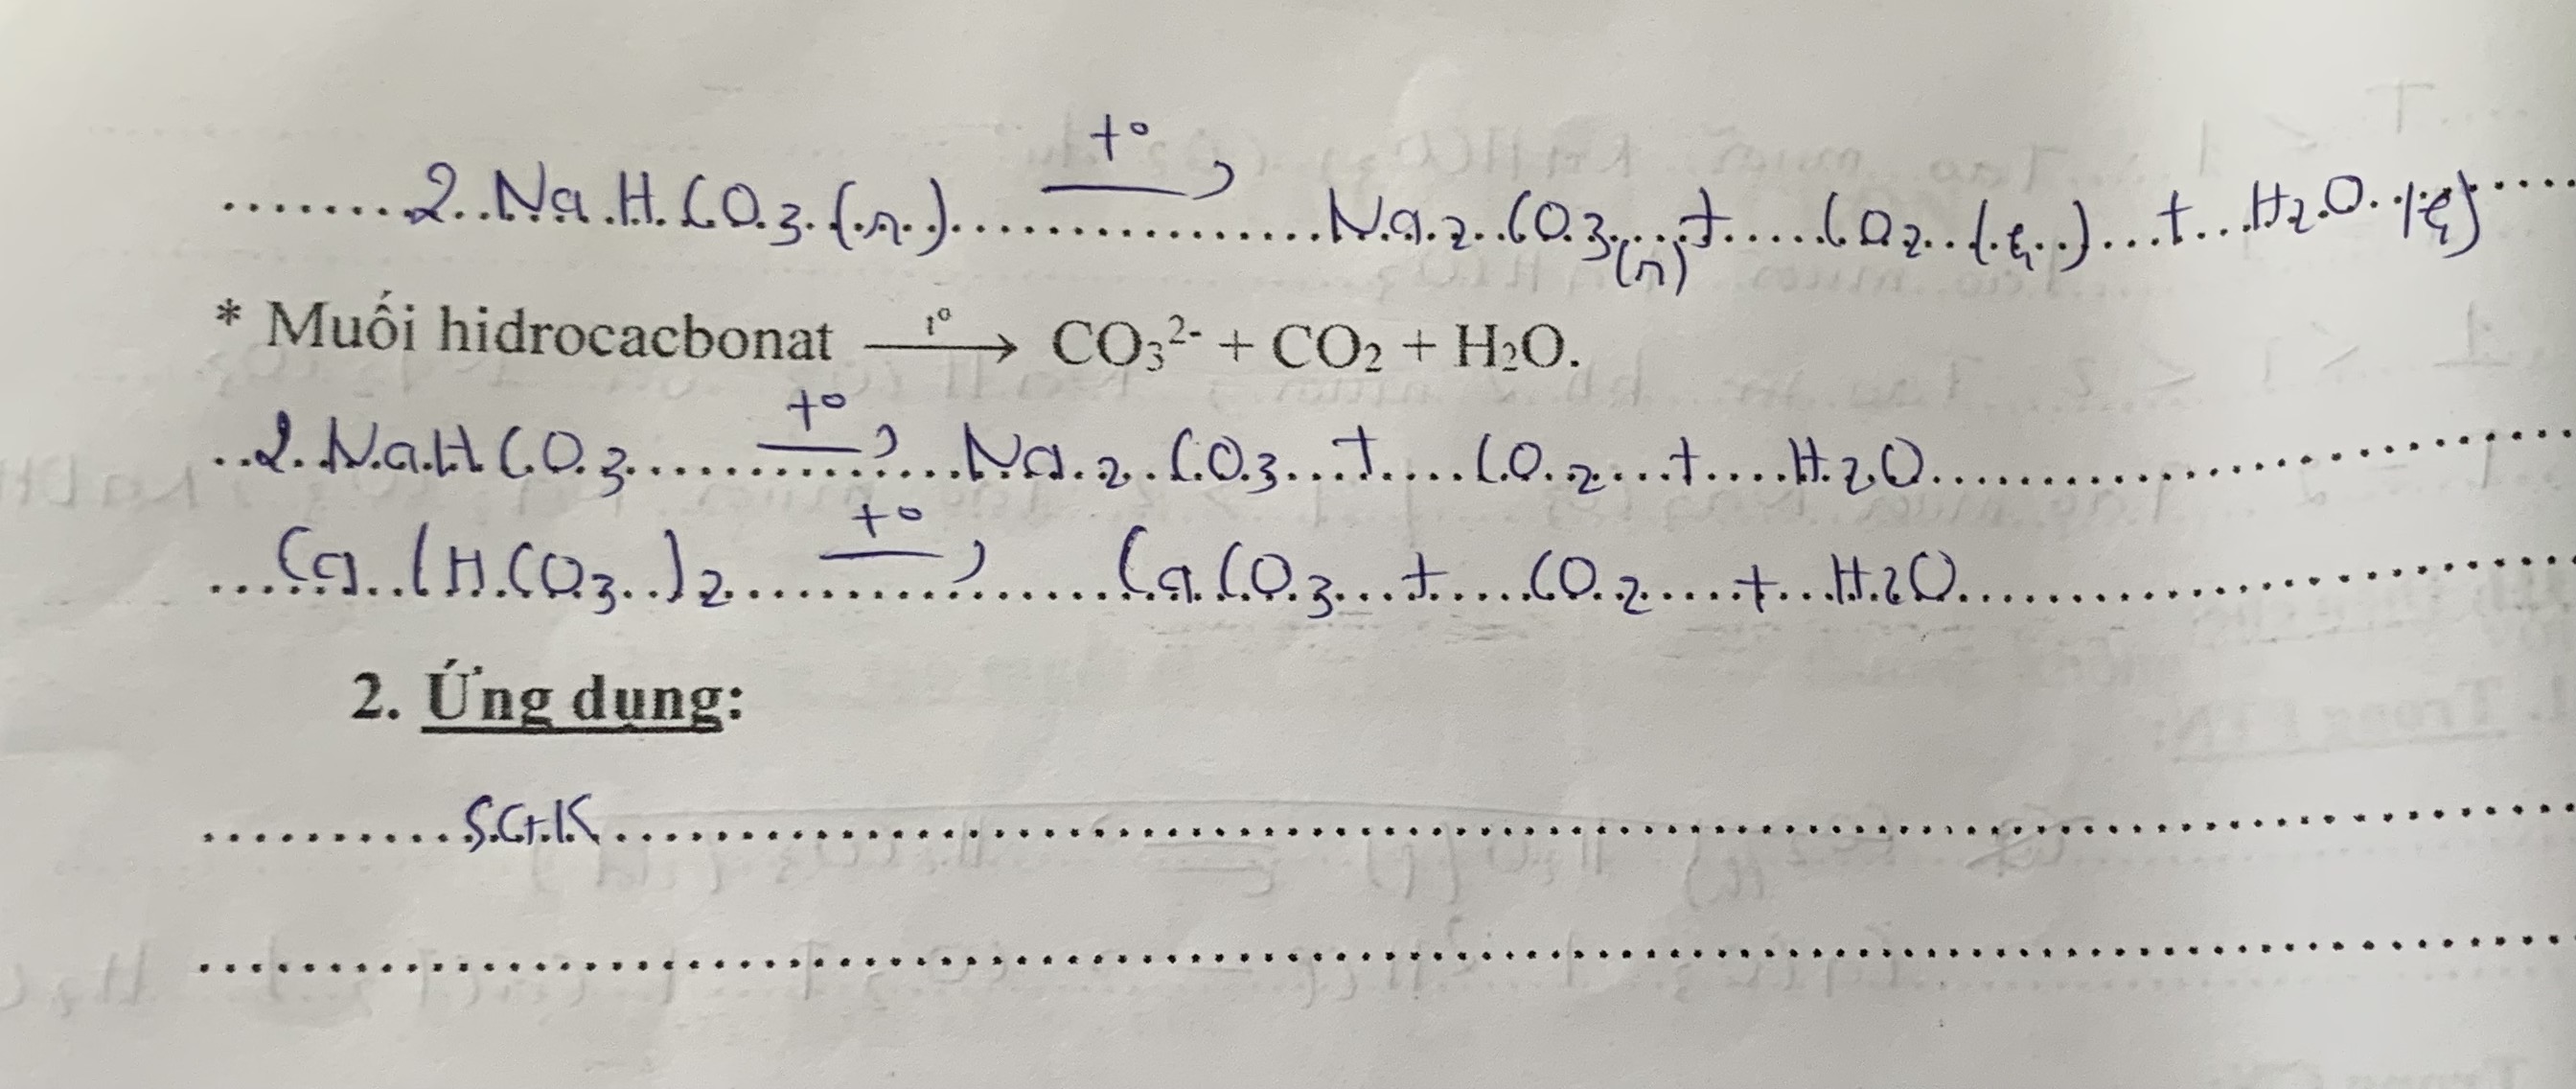 2 NaHCO₃ (r) —t°→ Na₂CO₃ (r) + CO₂ (k) + H₂O (k)
* Muối hidrocacbonat —t°→ CO₃²⁻ + CO₂ + H₂O.
2 NaHCO₃ —t°→ Na₂CO₃ + CO₂ + H₂O
Ca(HCO₃)₂ —t°→ CaCO₃ + CO₂ + H₂O
2. Ứng dụng:
SGK